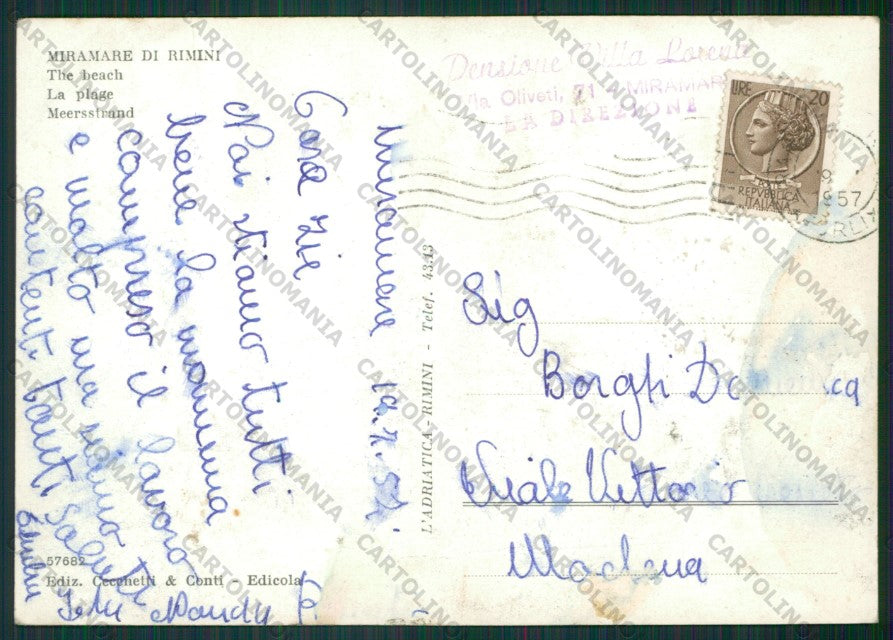 MIRAMARE DI RIMINI
The beach
La plage
Meersstrand
Pensione Villa Loreti
Via Oliveti, 71 - MIRAMAR
LA DIREZIONE
LIRE 20
POSTE
REPVBBLICA
ITALIANA
1957
Miramare 19.7.57.
Care Zie
Noi stiamo tutti
bene la mamma
compreso il lavoro
e molto ma siamo
contenti tanti saluti
L'ADRIATICA - RIMINI - Telef. 43.13
Sig
Borghi
Viale Vittorio
Modena
57682
Ediz. Cecchetti & Conti - Edicola
CARTOLINOMANIA